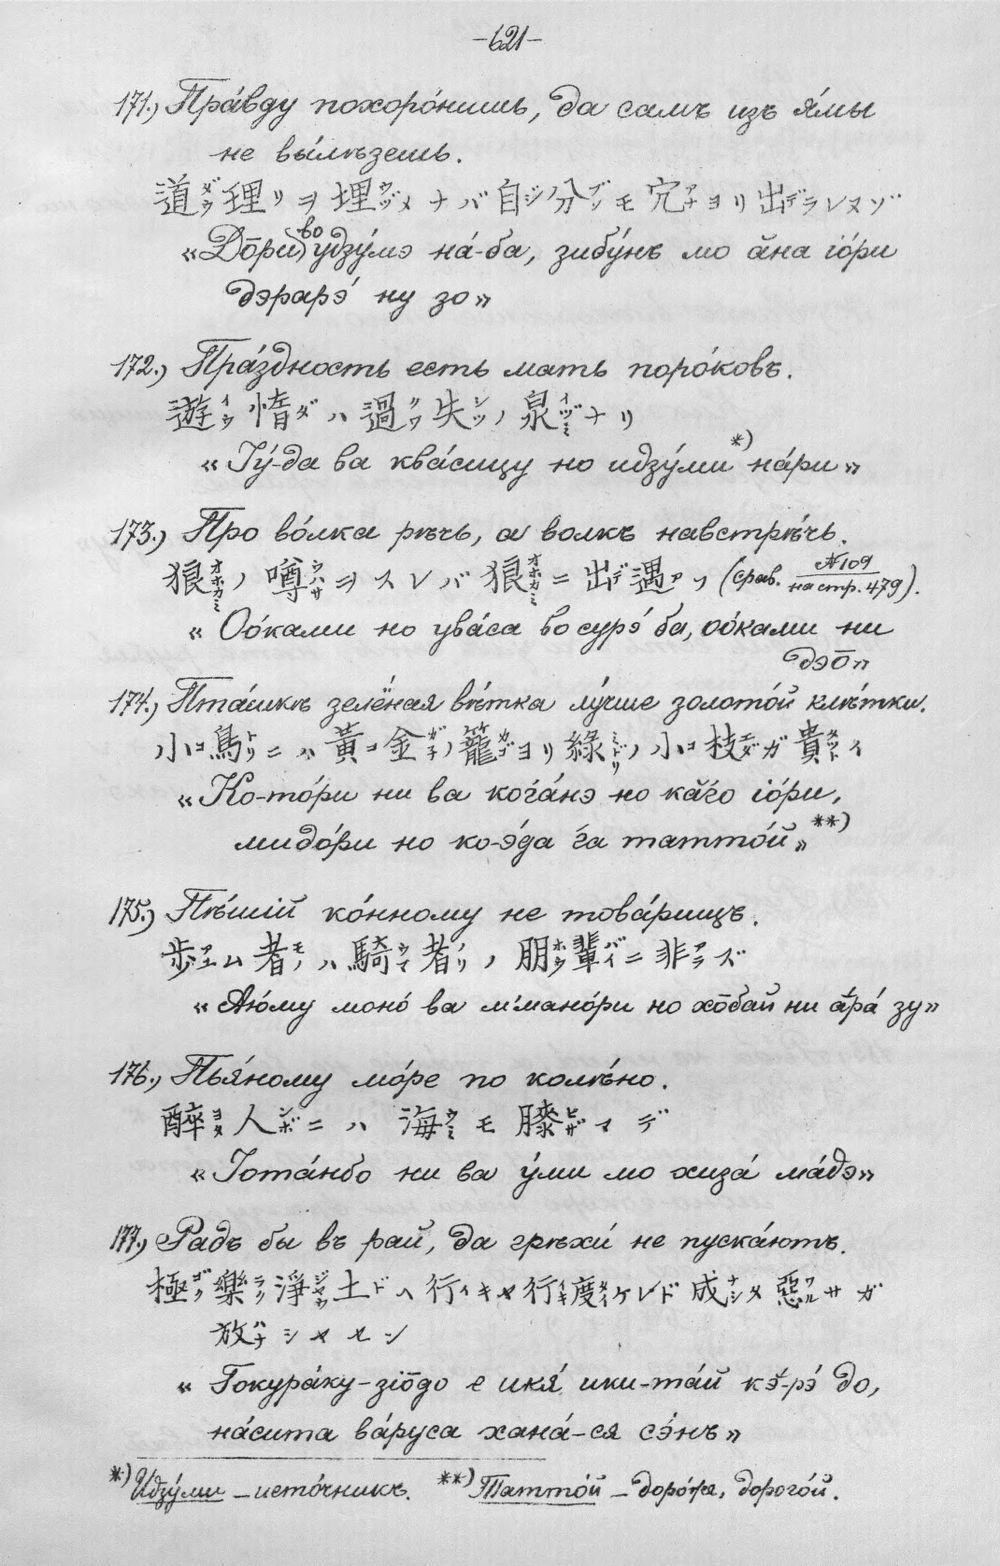 –621–
171.) Пра́вду похоро́нишь, да самъ изъ я́мы
не вы́лѣзешь.
道ダウ理リヲ埋ウヅメナバ自ジ分ブンモ穴アナヨリ出デラレヌゾ
«Дōри во удзу́мэ на́-ба, зибу́нъ мо ӑна іо́ри
дэрарэ́ ну зо»
172.) Пра́здность есть мать поро́ковъ.
遊イウ惰ダハ過クワ失シツノ泉イヅミナリ
«Іӯ́-да ва ква́сицу но идзу́ми*) на́ри»
173.) Про во́лка рѣчь, а волкъ навстрѣ́чь.
狼オホカミノ噂ウハサヲスレバ狼オホカミニ出デ遇アフ (срав. №109 на стр. 479).
«Оо́ками но ува́са во сурэ́ ба, оо́ками ни
дэō»
174.) Пта́шкѣ зелёная вѣ́тка лу́чше золото́й клѣ́тки.
小コ鳥トリニハ黄コ金ガネノ籠カゴヨリ綠ミドリノ小コ枝エダガ貴タツトイ
«Ко-то́ри ни ва кога́нэ но кӑго іо́ри,
мидо́ри но ко-э́да га таттой»**)
175.) Пѣ́шій ко́нному не това́рищъ.
歩アユム者モノハ騎ウマ者ノリノ朋ホウ輩バイニ非アラズ
«Аю́му моно́ ва м'мано́ри но хōбай ни ӑра́ зу»
176.) Пья́ному мо́ре по колѣ́но.
醉ヨタ人ンボニハ海ウミモ膝ヒザマデ
«Іота́нбо ни ва у́ми мо хиза́ ма́дэ»
177.) Радъ бы въ рай, да грѣхи́ не пуска́ютъ.
極ゴク樂ラク淨ジヤウ土ドヘ行イキヤ行イキ度タイケレド成ナシタ惡ワルサガ
放ハナシヤセン
«Гокура́ку-зіōдо е икя́ ики-та́й кэ́-рэ́ до,
на́сита ва́руса хана́-ся сэ́нъ»
*) Идзу́ми – исто́чникъ. **) Татто́й – до́рогъ, дорого́й.